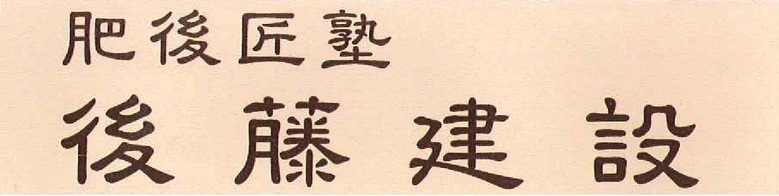 肥後匠塾
後藤建設